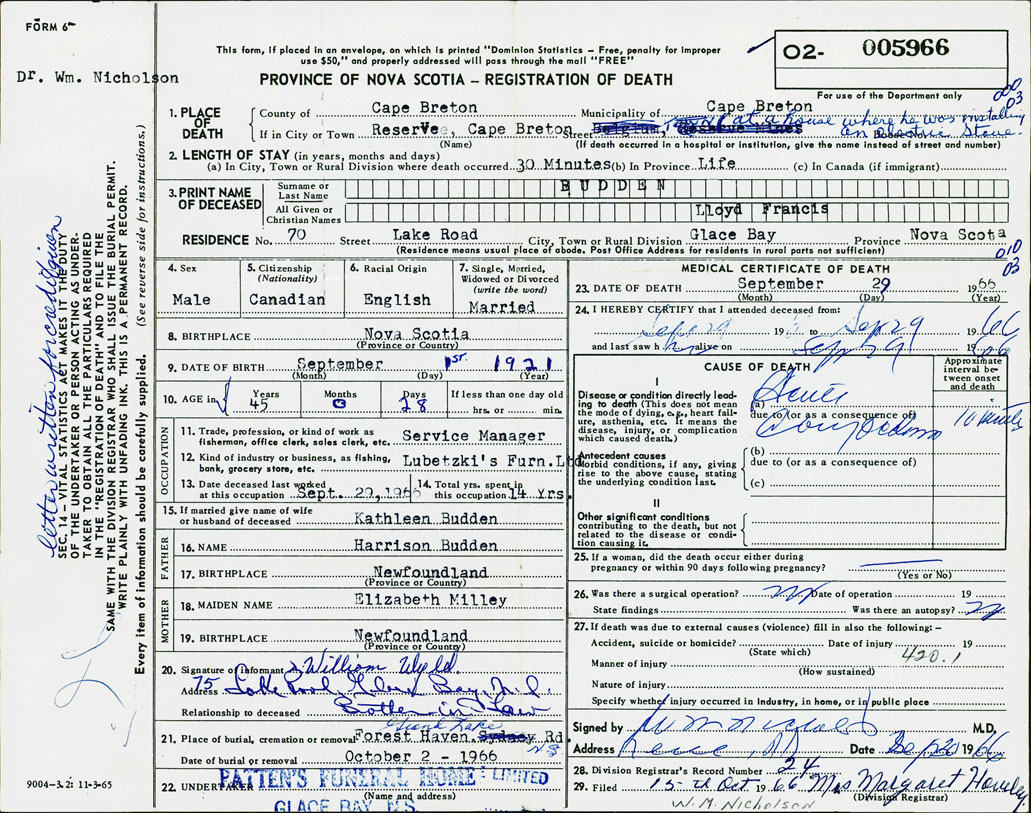 FORM 6
Dr. Wm. Nicholson
This form, if placed in an envelope, on which is printed "Dominion Statistics – Free, penalty for improper
use $50," and properly addressed will pass through the mail "FREE"
PROVINCE OF NOVA SCOTIA – REGISTRATION OF DEATH
02- 005966
For use of the Department only
000
03
1. PLACE OF DEATH
County of Cape Breton Municipality of Cape Breton
If in City or Town Reserve, Cape Breton Street Belgium, Reserve Mines at a house where he was installing
an electric stove.
(Name) (If death occurred in a hospital or institution, give the name instead of street and number)
2. LENGTH OF STAY (in years, months and days)
(a) In City, Town or Rural Division where death occurred 30 Minutes (b) In Province Life (c) In Canada (if immigrant)
3. PRINT NAME OF DECEASED
Surname or Last Name BUDDEN
All Given or Christian Names Lloyd Francis
RESIDENCE No. 70 Street Lake Road City, Town or Rural Division Glace Bay Province Nova Scota
(Residence means usual place of abode. Post Office Address for residents in rural parts not sufficient)
010
03
4. Sex Male
5. Citizenship (Nationality) Canadian
6. Racial Origin English
7. Single, Married, Widowed or Divorced (write the word) Married
8. BIRTHPLACE Nova Scotia
(Province or Country)
9. DATE OF BIRTH September 1st. 1921
(Month) (Day) (Year)
10. AGE in Years 45 Months 0 Days 28 If less than one day old hrs. or min.
OCCUPATION
11. Trade, profession or kind of work as
fisherman, office clerk, sales clerk, etc. Service Manager
12. Kind of industry or business, as fishing,
bank, grocery store, etc. Lubetzki's Furn.Ltd
13. Date deceased last worked
at this occupation Sept. 29, 1966
14. Total yrs. spent in
this occupation 14 Yrs.
15. If married give name of wife
or husband of deceased Kathleen Budden
FATHER
16. NAME Harrison Budden
17. BIRTHPLACE Newfoundland
(Province or Country)
MOTHER
18. MAIDEN NAME Elizabeth Milley
19. BIRTHPLACE Newfoundland
(Province or Country)
20. Signature of informant William Wyld
Address 75 Lake Road, Glace Bay, N.S.
Relationship to deceased Brother-in-Law
Grand Lake
21. Place of burial, cremation or removal Forest Haven. Sydney Rd.
N.S.
Date of burial or removal October 2 - 1966
22. UNDERTAKER PATTEN'S FUNERAL HOME LIMITED
(Name and address)
GLACE BAY N.S.
MEDICAL CERTIFICATE OF DEATH
23. DATE OF DEATH September 29 1966
(Month) (Day) (Year)
24. I HEREBY CERTIFY that I attended deceased from:
Sep 29 196 to Sep 29 1966
and last saw him alive on Sep 29 1966
CAUSE OF DEATH
Approximate interval between onset and death
I
Disease or condition directly leading
to death (This does not mean
the mode of dying, e.g., heart failure,
asthenia, etc. It means the
disease, injury, or complication
which caused death.)
(a) Acute
due to (or as a consequence of)
10 minutes
Antecedent causes
Morbid conditions, if any, giving
rise to the above cause, stating
the underlying condition last.
(b)
due to (or as a consequence of)
(c)
II
Other significant conditions
contributing to the death, but not
related to the disease or condition
causing it.
25. If a woman, did the death occur either during
pregnancy or within 90 days following pregnancy?
(Yes or No)
26. Was there a surgical operation? no Date of operation 19
State findings Was there an autopsy? no
27. If death was due to external causes (violence) fill in also the following: –
Accident, suicide or homicide? Date of injury 19
(State which)
420.1
Manner of injury
(How sustained)
Nature of injury
Specify whether injury occurred in industry, in home, or in public place
Signed by W M Nicholson M.D.
Address Date Sep 30 1966
28. Division Registrar's Record Number 24
29. Filed 15th Oct 1966 Mrs Margaret
(Division Registrar)
W. M. Nicholson
letter written for
SEC. 14 – VITAL STATISTICS ACT MAKES IT THE DUTY
OF THE UNDERTAKER OR PERSON ACTING AS UNDERTAKER
TO OBTAIN ALL THE PARTICULARS REQUIRED
IN THE "REGISTRATION OF DEATH" AND TO FILE THE
SAME WITH THE DIVISION REGISTRAR WHO SHALL ISSUE THE BURIAL PERMIT.
WRITE PLAINLY WITH UNFADING INK. THIS IS A PERMANENT RECORD.
Every item of information should be carefully supplied. (See reverse side for instructions.)
9004-3.2: 11-3-65